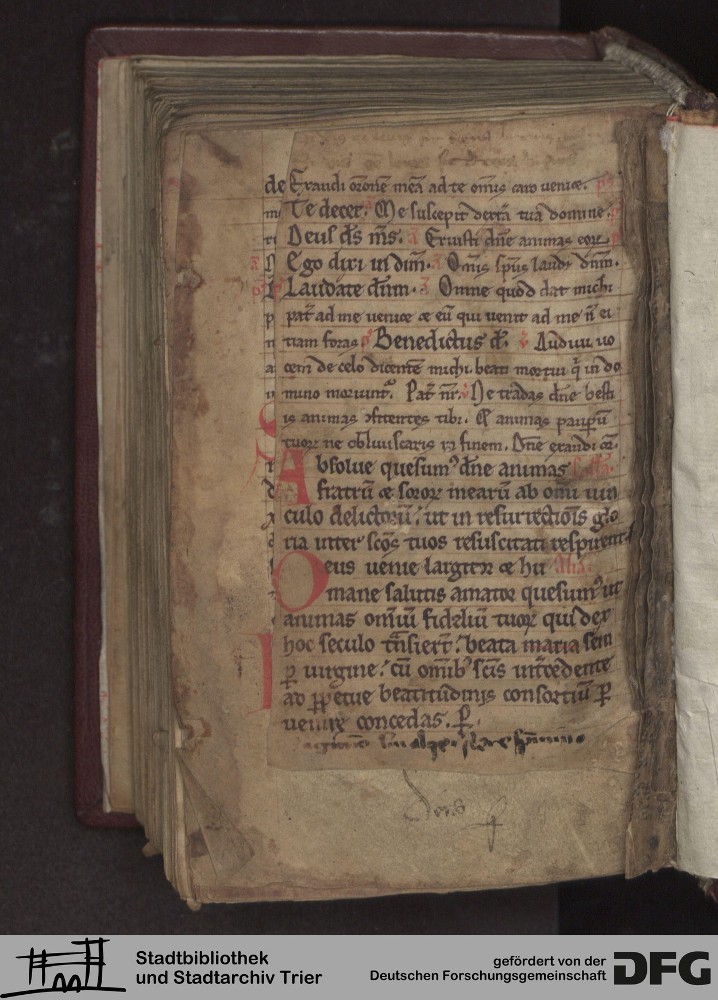 de Exaudi orōnē meā ad te om̄is caro veniet. ps
Te decet. a Me suscepit dextra tua domine. p
Deus ds ms. a Eruisti dn̄e animas eoꝝ. p
Ego dixi in dim̄. a Om̄is sp̄us laudꝫ dn̄m.
Laudate dn̄m. a Omne quod dat michi
pat̄ ad me veniet ⁊ eū qui venit ad me n̄ ei
ciam foras ps Benedictus d̄s. v Audivi vo
cem de celo dicentē michi. beati mortui q̄ in do
mino moriunt᷑. Pat̄ nr̄. v Ne tradas dn̄e besti
is animas ꝯfitentes tibi. Et animas paupeꝝ
tuoꝝ ne obliviscaris in finem. Dn̄e exaudi or̄.
Absolve quesum᷒ dn̄e animas
fratrū ⁊ soroꝝ mearū ab om̄i vin
culo delictorū. ut in resurrectiōis glo
ria inter sc̄os tuos resuscitati respirent
Deus venie largitor ⁊ hu Alia
mane salutis amator quesum᷒ ut
animas om̄iū fideliū tuoꝝ qui de ex
hoc seculo t̄nsiert̄. beata maria sem
ꝑ virgine. cū om̄ib᷒ sc̄is int̄cedente
ad ꝑpetue beatitudinis consortiū ꝑ
venire concedas. ꝑ.
Stadtbibliothek
und Stadtarchiv Trier
gefördert von der
Deutschen Forschungsgemeinschaft
DFG